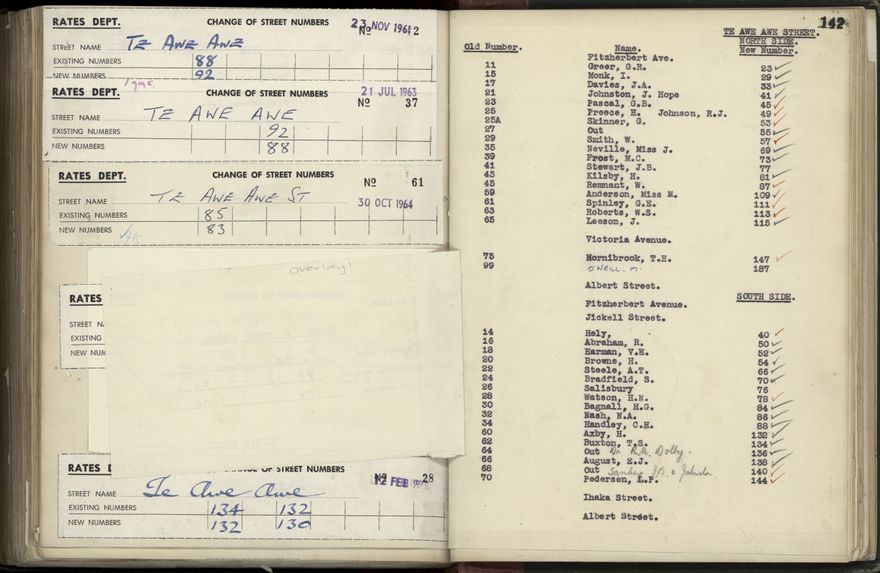 RATES DEPT. CHANGE OF STREET NUMBERS 23 NOV 1961 No 2
STREET NAME TE AWE AWE
EXISTING NUMBERS 88
NEW NUMBERS 92
RATES DEPT. CHANGE OF STREET NUMBERS 21 JUL 1963
No 37
STREET NAME TE AWE AWE
EXISTING NUMBERS 92
NEW NUMBERS 88
RATES DEPT. CHANGE OF STREET NUMBERS No 61
STREET NAME TE AWE AWE ST 30 OCT 1964
EXISTING NUMBERS 85
NEW NUMBERS 83
overlay!
RATES
STREET NA
EXISTING
NEW NUM
RATES D CHANGE OF STREET NUMBERS No 28
12 FEB
STREET NAME Te Awe Awe
EXISTING NUMBERS 134 132
NEW NUMBERS 132 130
142
TE AWE AWE STREET.
NORTH SIDE.
Old Number. Name. New Number.
Fitzherbert Ave.
11 Greer, G.R. 23
15 Monk, I. 29
17 Davies, J.A. 33
21 Johnston, J. Hope 41
23 Pascal, G.B. 45
25 Preece, H. Johnson, R.J. 49
25A Skinner, G. 53
27 Out 55
29 Smith, W. 57
35 Neville, Miss J. 69
39 Frost, M.C. 73
41 Stewart, J.B. 77
43 Kilsby, H. 81
45 Remnant, W. 87
59 Anderson, Miss M. 109
61 Spinley, G.E. 111
63 Roberts, W.S. 113
65 Leeson, J. 115
Victoria Avenue.
75 Hornibrook, T.H. 147
99 O'NEILL. M. 187
Albert Street.
SOUTH SIDE.
Fitzherbert Avenue.
Jickell Street.
14 Hely, 40
16 Abraham, R. 50
18 Harman, V.E. 52
20 Browne, H. 54
22 Steele, A.T. 66
24 Bradfield, S. 70
26 Salisbury 76
28 Watson, H.N. 78
30 Bagnall, H.G. 84
32 Nash, N.A. 86
34 Handley, C.H. 88
60 Axby, H. 132
62 Buxton, T.S. 134
64 Out Dr. R.M. Dolby. 136
66 August, E.J. 138
68 Out 140
70 Pedersen, L.P. 144
Ihaka Street.
Albert Street.